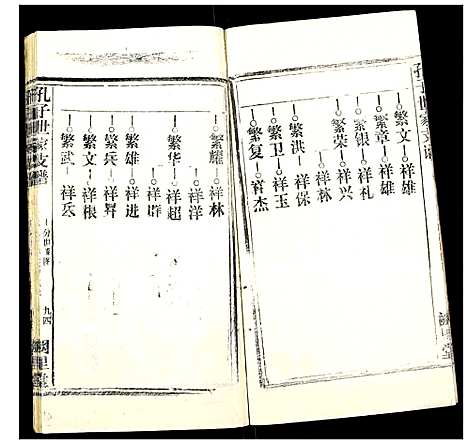 繁文 祥雄
繁章 祥雄
繁銀 祥礼
繁荣 祥兴
祥林
繁洪 祥保
繁卫 祥玉
繁复 祥杰
繁耀 祥林
祥洋
繁华 祥超
祥辟
繁雄 祥进
繁兵 祥昇
繁文 祥根
繁武 祥兵
孔子世家支譜
九四
闕里堂